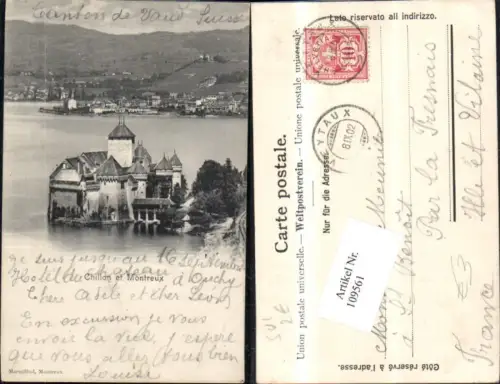 Canton de Vaud Suisse
je suis jusqu'au 16 Septembre
Hotel du Chateau à Ouchy
Chillon et Montreux
Chère Adèle et cher Léon
En excursion je vous
envoie la vue, j'espère
que vous allez tous bien
Louise
Montreux.
Lato riservato all indirizzo.
Carte postale.
Union postale universelle. — Weltpostverein. — Unione postale universale.
Nur für die Adresse.
Côté réservé à l'adresse.
10
YTAUX
8 IX 02
à St Benoit
Par la Fresnais
Ille et Vilaine
France
Artikel Nr.
109561